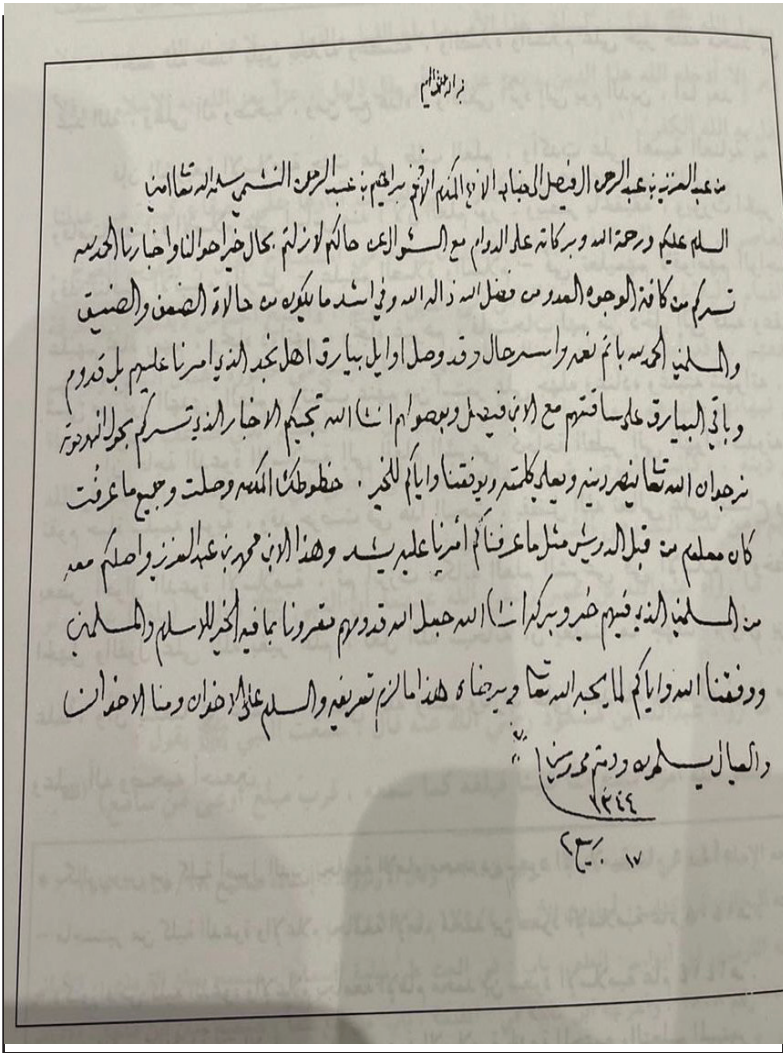 بسم الله الرحمن الرحيم
من عبد العزيز بن عبد الرحمن ال فيصل الى جناب الاخ المكرم الافخم براهيم بن عبد الرحمن النشمي سلمه الله تعا امين
السلم عليكم ورحمة الله وبركاته على الدوام مع السؤال عن حالكم لازلتم بحال خير احوالنا واخبارنا الحمد لله
تسركم من كافة الوجوه العدو من فضل الله ذاله الله وفي اشد ما يكون من حالاة الضعف والضيق
والمسلمين الحمد لله باتم نعمه واسر حال وقد وصل اوايل بيارق اهل نجد الذي امرنا عليهم بل قدوم
وباقي البيارق على ساقتهم مع الابن فيصل وبوصولهم انشا الله تجيكم الاخبار الذي تسركم بحول الله وقوته
نرجوا ان الله تعا ينصر دينه ويعلي كلمته ويوفقنا واياكم للخير . خطوطك المكرمه وصلت وجميع ما عرفت
كان معلوم من قبل الدويش مثل ما عرفناكم أمرنا عليه يشد وهذا الابن محمد بن عبد العزيز واصلكم معه
من المسلمين الذي فيهم خير وبركه انشا الله جعل الله قدومهم مقرونا بما فيه الخير للاسلام والمسلمين
ووفقنا الله واياكم لما يحبه الله تعا ويرضاه هذا ما لزم تعريفه والسلم على الاخوان ومنا الاخوان
والعيال يسلمون ودمتم محروسين
١٣٤٤
١٧ ربيع ٢